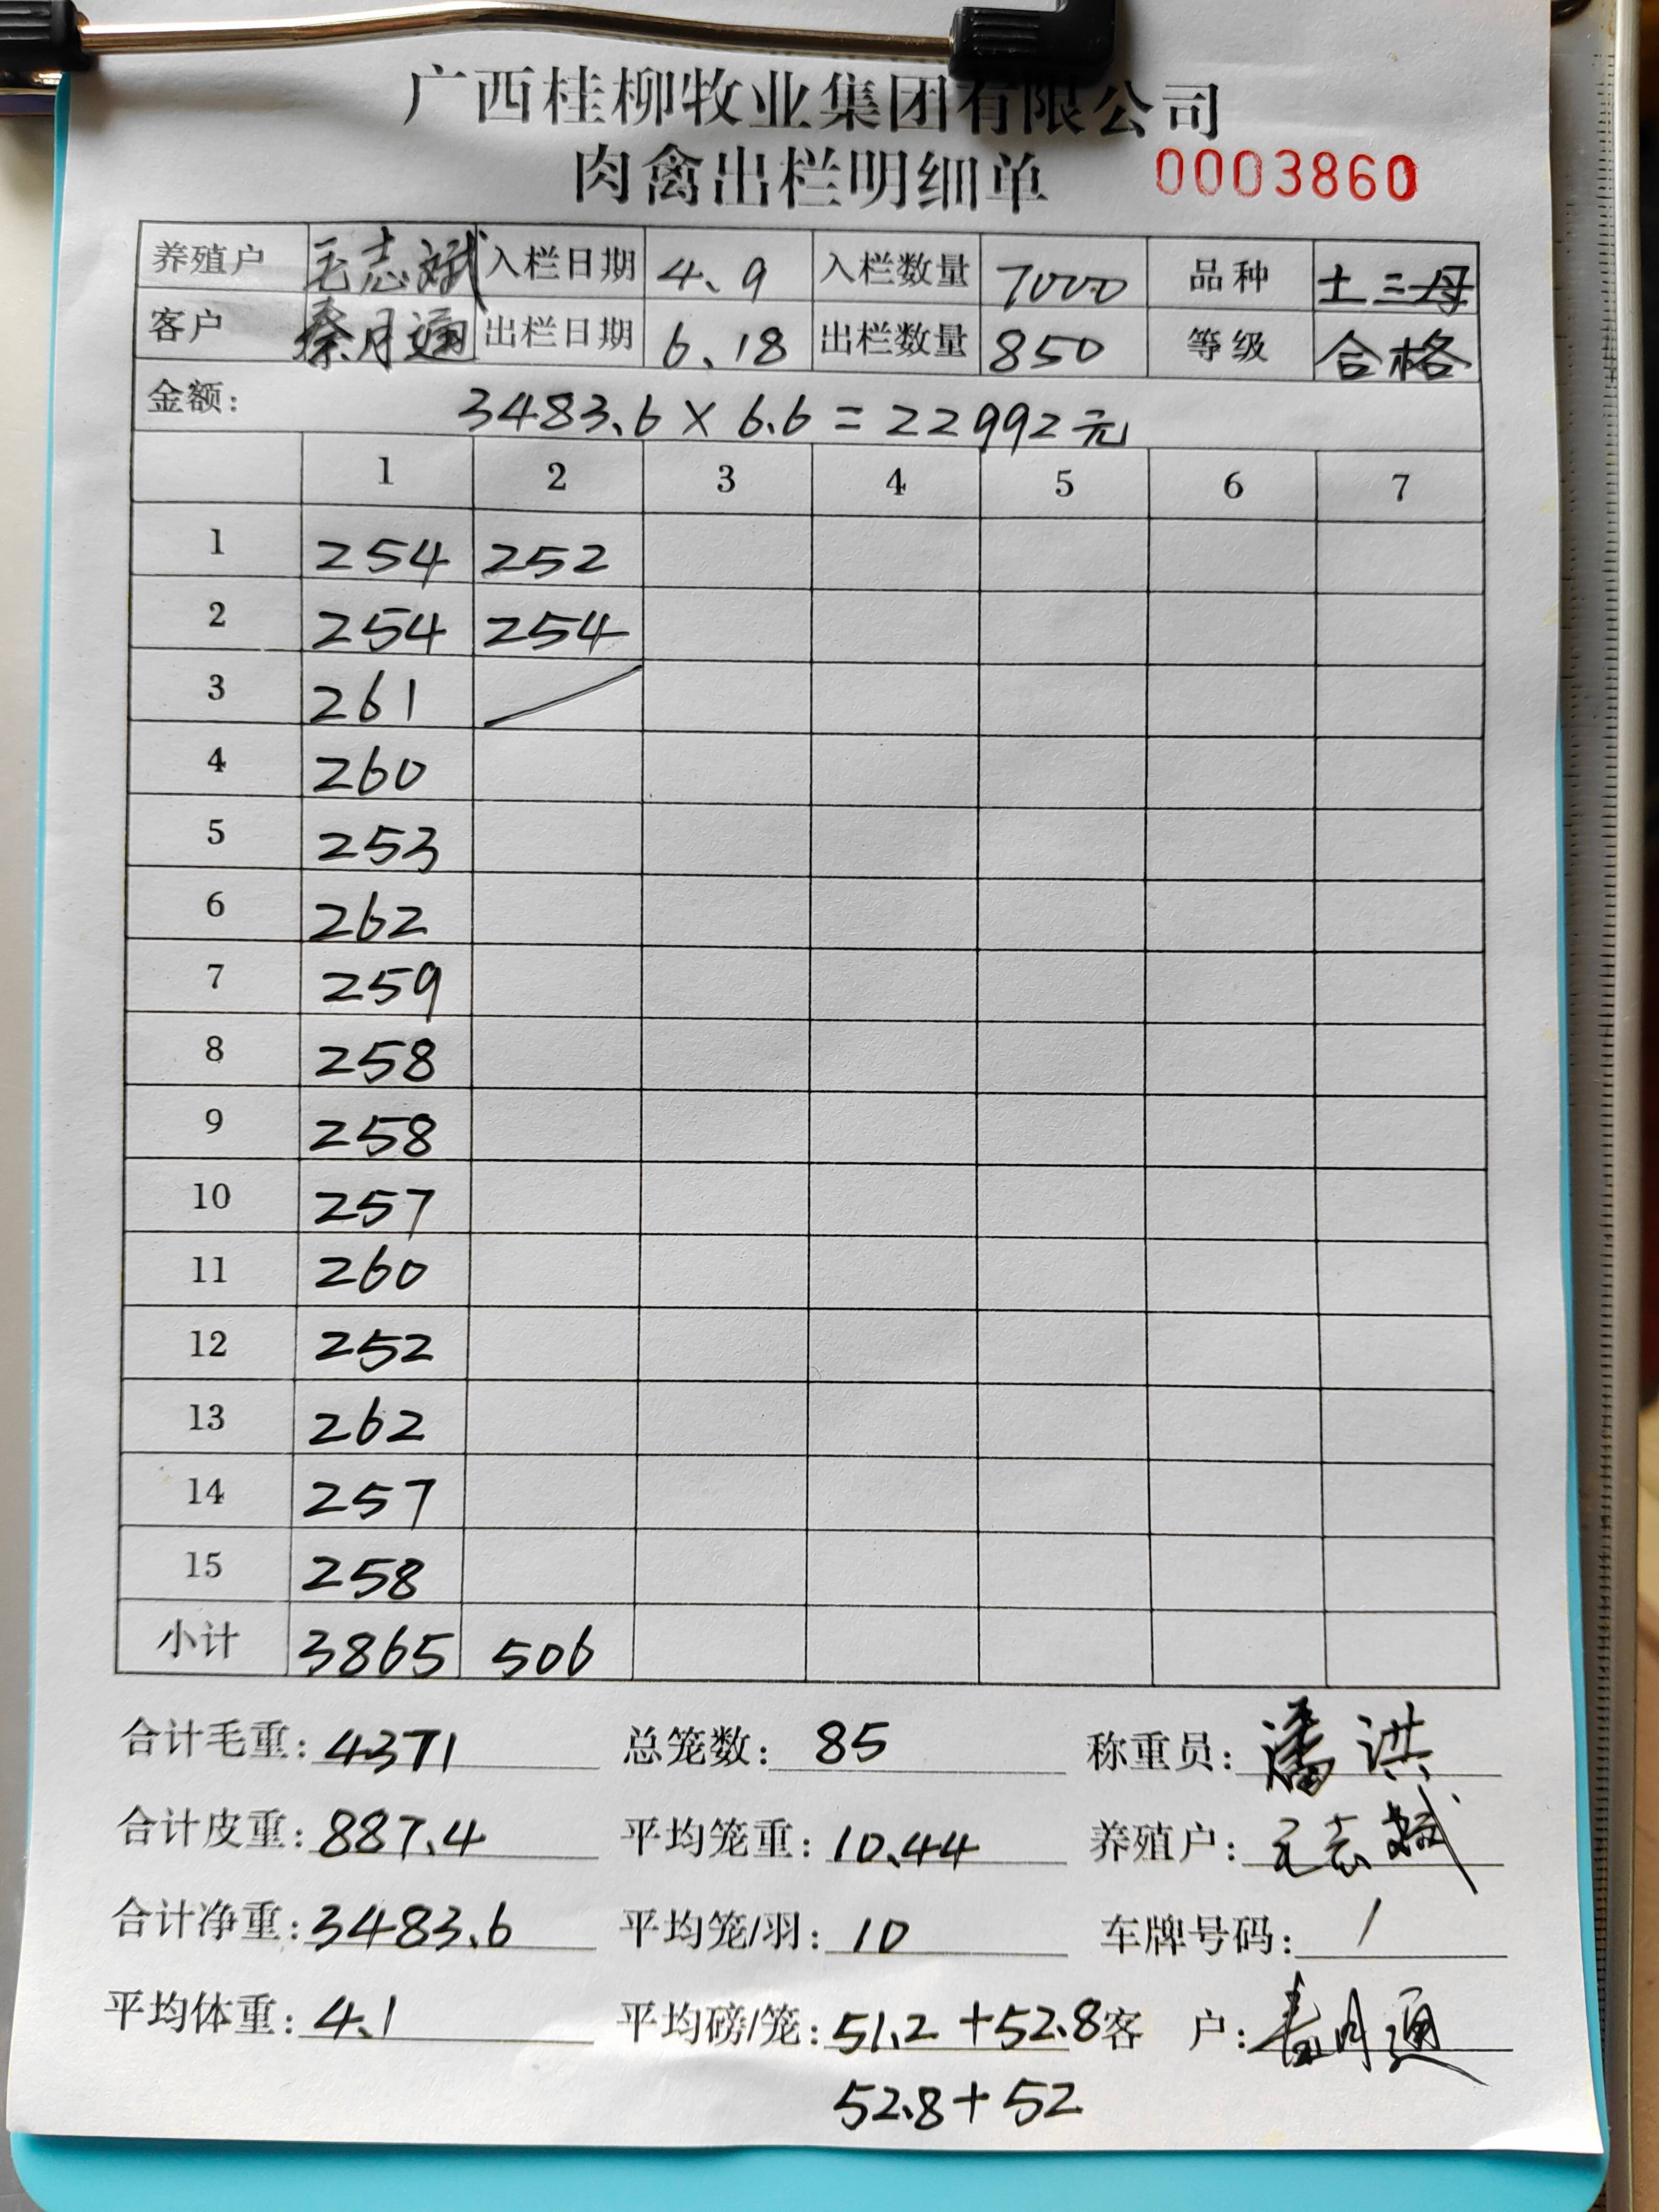 广西桂柳牧业集团有限公司
肉禽出栏明细单 0003860
养殖户 志斌 入栏日期 4.9 入栏数量 7000 品种 土三母
客户 秦月通 出栏日期 6.18 出栏数量 850 等级 合格
金额: 3483.6×6.6=22992元
1 2 3 4 5 6 7
1 254 252
2 254 254
3 261 /
4 260
5 253
6 262
7 259
8 258
9 258
10 257
11 260
12 252
13 262
14 257
15 258
小计 3865 506
合计毛重: 4371 总笼数: 85 称重员: 潘洪
合计皮重: 887.4 平均笼重: 10.44 养殖户: 志斌
合计净重: 3483.6 平均笼/羽: 10 车牌号码: /
平均体重: 4.1 平均磅/笼: 51.2+52.8 客 户: 秦月通
52.8+52